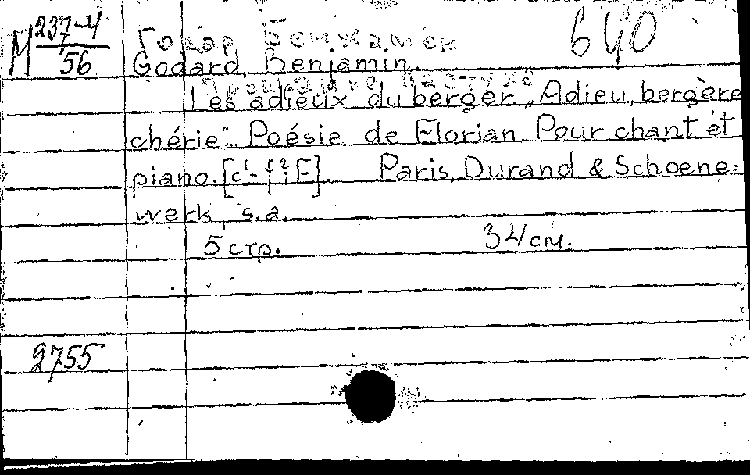 М 237-4/56
Годар, Бенжамен
640
Godard, Benjamin.
Les adieux du berger „Adieu, bergère
chérie". Poésie de Florian Pour chant et
piano. [c¹-f²; F]. Paris, Durand & Schoene-
werk, s.a.
5 стр. 34 см.
2755